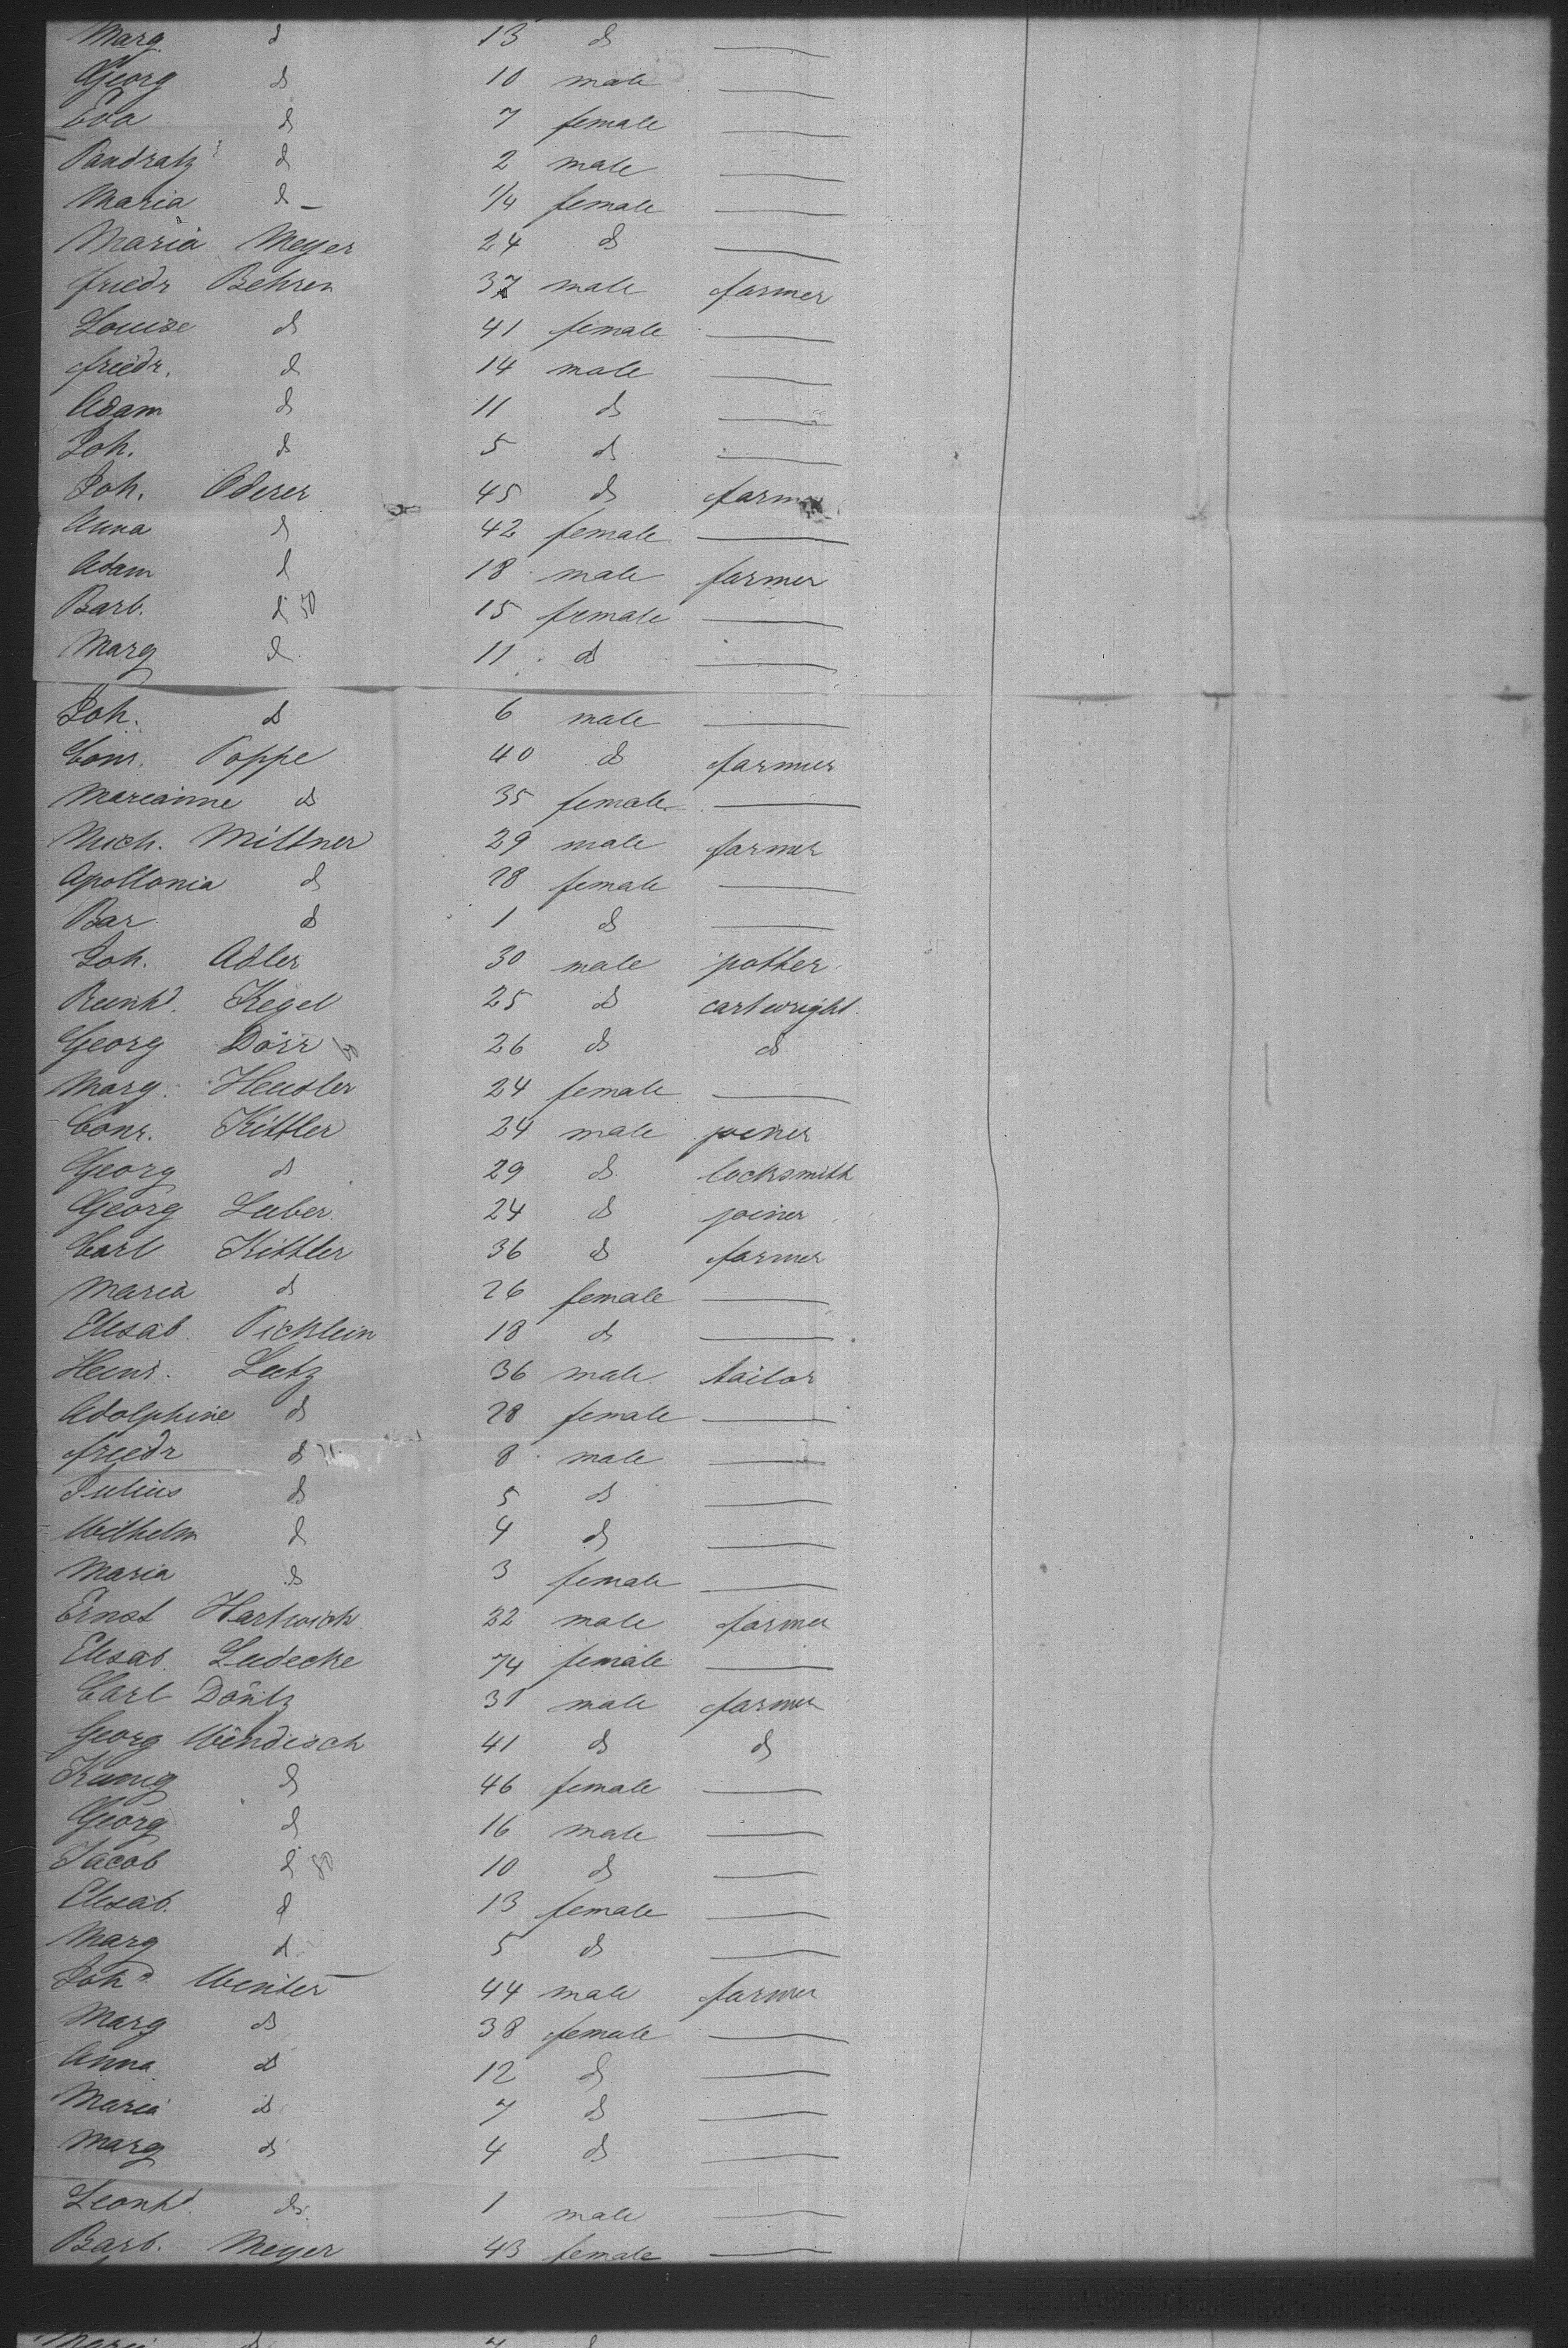 Marg. d 13 d —
Georg d 10 male —
Eva d 7 female —
Pandratz d 2 male —
Maria d 1/4 female —
Maria Meyer 24 d —
Friedr Behren 37 male farmer
Louise d 41 female —
Friedr. d 14 male —
Adam d 11 d —
Joh. d 5 d —
Joh. Oderer 45 d farmer
Anna d 42 female —
Adam d 18 male farmer
Barb. d 50 15 female —
Marg d 11 d —
Joh. d 6 male —
Conr. Poppe 40 d farmer
Marianne d 35 female —
Mich. Mittner 29 male farmer
Apollonia d 28 female —
Bar d 1 d —
Joh. Adler 30 male potter
Reinhd. Kegel 25 d cartwright
Georg Dörr 26 d d
Marg. Heusler 24 female —
Conr. Kittler 24 male joiner
Georg d 29 d locksmith
Georg Luber 24 d joiner
Carl Kittler 36 d farmer
Maria d 26 female —
Elisab. Picklein 18 d —
Heinr. Lutz 36 male tailor
Adolphine d 28 female —
Friedr d 8 male —
Julius d 5 d —
Wilhelm d 4 d —
Maria d 3 female —
Ernst Hartwich 32 male farmer
Elisab. Ludecke 74 female —
Carl Döntz 31 male farmer
Georg Windisch 41 d d
Kunig d 46 female —
Georg d 16 male —
Jacob d 80 10 d —
Elisab. d 13 female —
Marg d 5 d —
Joh Winter 44 male farmer
Marg d 38 female —
Anna d 12 d —
Maria d 7 d —
Marg d 4 d —
Leonhd. d 1 male —
Barb. Meyer 43 female —